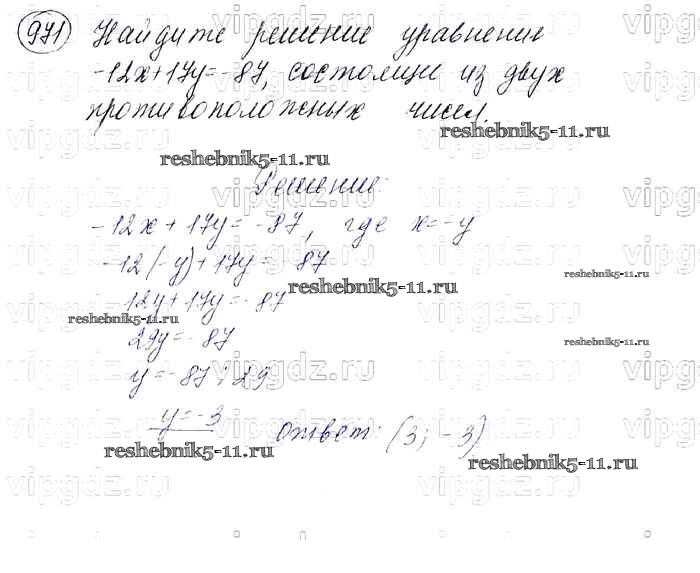 971 Найдите решение уравнение
-12x+17y=-87, состоящие из двух
противоположных чисел.
Решение:
-12x+17y=-87, где x=-y
-12(-y)+17y=-87
12y+17y=-87
29y=-87
y=-87:29
y=-3
ответ: (3; -3)
reshebnik5-11.ru
reshebnik5-11.ru
reshebnik5-11.ru
reshebnik5-11.ru
reshebnik5-11.ru
reshebnik5-11.ru
reshebnik5-11.ru
reshebnik5-11.ru
vipgdz.ru
vipgdz.ru
vipgdz.ru
vipgdz.ru